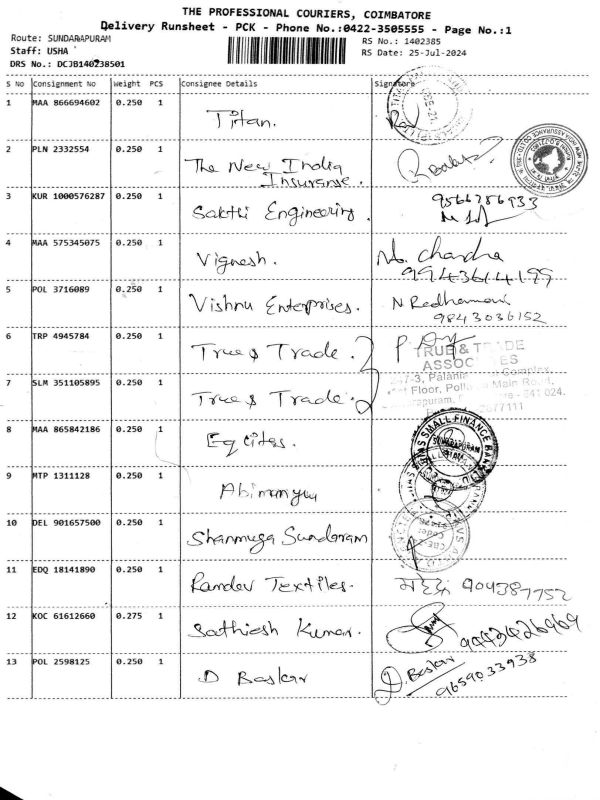 THE PROFESSIONAL COURIERS, COIMBATORE
Delivery Runsheet - PCK - Phone No.:0422-3505555 - Page No.:1
Route: SUNDARAPURAM
Staff: USHA
DRS No.: DCJB140238501
RS No.: 1402385
RS Date: 25-Jul-2024
S No Consignment No Weight PCS Consignee Details Signature
1 MAA 866694602 0.250 1 Titan.
2 PLN 2332554 0.250 1 The New India
Insuranse.
3 KUR 1000576287 0.250 1 Sakthi Engineering. 9566756933
4 MAA 575345075 0.250 1 Vignesh. Chandra
9943614199
5 POL 3716089 0.250 1 Vishnu Enterprises. N Radhamani
9843036152
6 TRP 4945784 0.250 1 True & Trade.
TRUE & TRADE
ASSOCIATES
7 SLM 351105895 0.250 1 True & Trade.
Main Road,
641 024.
8 MAA 865842186 0.250 1 Eqcites.
SMALL FINANCE BANK
SUNDARAPURAM
9 MTP 1311128 0.250 1
10 DEL 901657500 0.250 1 Shanmuga Sundaram
11 EDQ 18141890 0.250 1 Ramdev Textiles. महेंद्र 904387752
12 KOC 61612660 0.275 1 Sathiesh Kumar. 9443426969
13 POL 2598125 0.250 1 D Baskar D. Baskar
9659033938